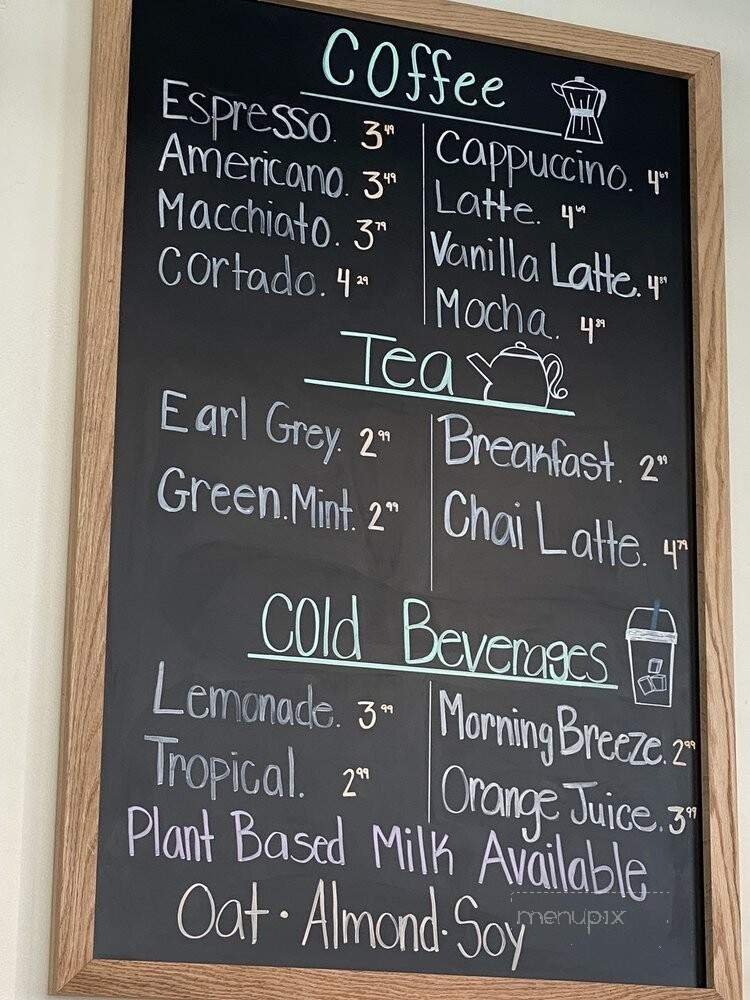 Coffee
Espresso. 3 49
Americano. 3 49
Macchiato. 3 79
Cortado. 4 29
Cappuccino. 4 69
Latte. 4 69
Vanilla Latte. 4 89
Mocha. 4 89
Tea
Earl Grey. 2 99
Green.Mint. 2 99
Breakfast. 2 99
Chai Latte. 4 79
Cold Beverages
Lemonade. 3 99
Tropical. 2 99
Morning Breeze. 2 99
Orange Juice. 3 99
Plant Based Milk Available
Oat · Almond · Soy
menupix